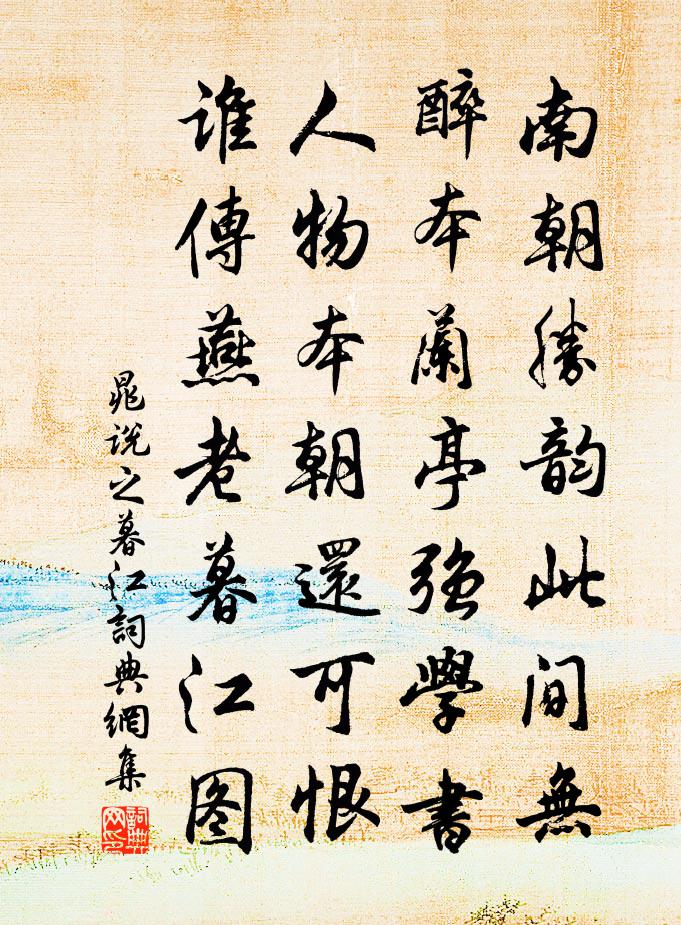 南朝勝韵此间無
醉本蘭亭强學書
人物本朝還可恨
谁傳燕老暮江图
晁说之暮江詞典網集
詞典网印